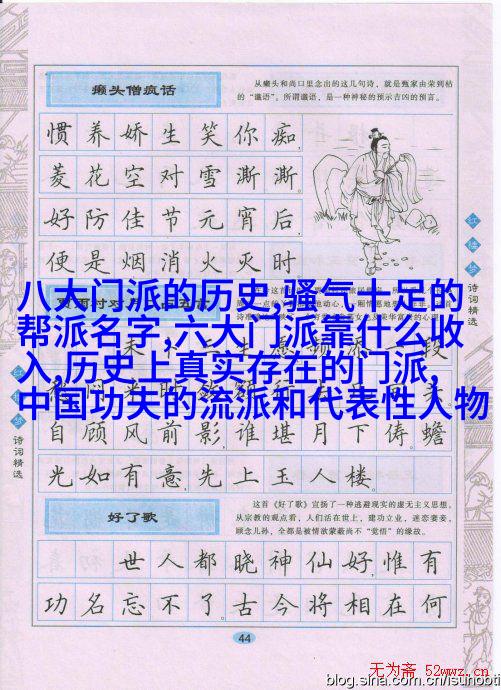 癞头僧疯话
从癞头和尚口里念出的这几句诗，就是甄家由荣到枯
的“谶语”。所谓谶语，是一种神秘的预示吉凶的预言。
惯养娇生笑你痴，
菱花空对雪澌澌。
好防佳节元宵后，
便是烟消火灭时
八大门派的历史,骚气十足的
帮派名字,六大门派靠什么收
入,历史上真实存在的门派,
中国功夫的流派和代表性人物
自顾风前影，谁堪月下俦 蟾
光如有意，先上玉人楼。
好了歌
这首《好了歌》宣扬了一种逃避现实的虚无主义思想。
从宗教的观点看，人们活在世上，建功立业，迷恋妻妾，
顾念儿孙，全都是被情欲蒙蔽尚不“觉悟”的缘故。
世人都晓神仙好，惟有
功名忘不了 古今将相在何
44
红楼梦
诗词精选
诗词精选
无为斋 52wwz.cn
blog.sina.com.cn/isunobti